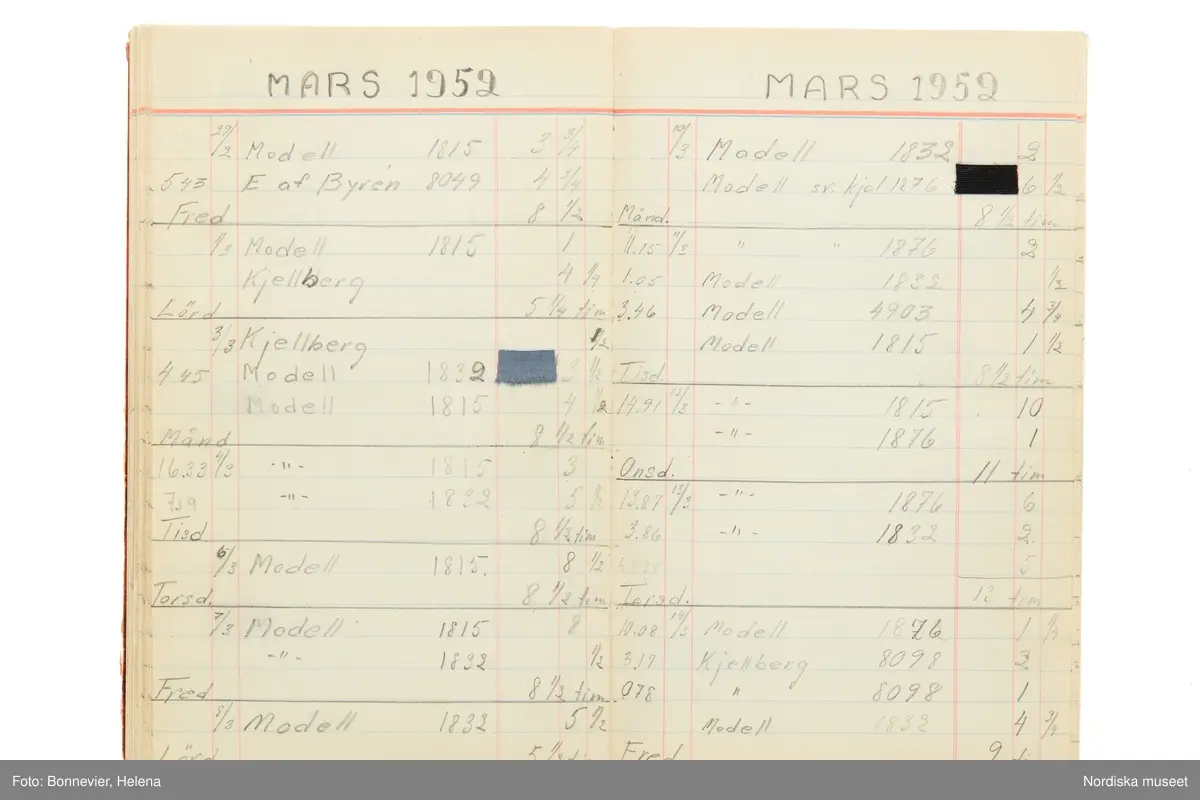 MARS 1952
29/2 Modell 1815 3 3/4
5 43 E af Byrén 8049 4 3/4
Fred 8 1/2
1/3 Modell 1815 1
Kjellberg 4 1/4
Lörd 5 1/4 tim
3/3 Kjellberg 1/2
4 45 Modell 1832 3 1/2
Modell 1815 4 1/2
Månd 8 1/2 tim
16.33 4/3 -"- 1815 3
-"- 1832 5 1/2
Tisd 8 1/2 tim
6/3 Modell 1815. 8 1/2
Torsd. 8 1/2 tim
7/3 Modell 1815 8
-"- 1832 1/2
Fred 8 1/2 tim
8/3 Modell 1832 5 1/2
Lörd
MARS 1952
10/3 Modell 1832 2
Modell sv. kjol 1876 6 1/2
Månd. 8 1/2 tim
11.15 11/3 " " 1876 2
1.05 Modell 1832 1/2
3.46 Modell 4903 4 3/4
Modell 1815 1 1/2
Tisd. 8 1/2 tim
14.91 12/3 -"- 1815 10
-"- 1876 1
Onsd. 11 tim
13.87 13/3 -"- 1876 6
3.86 -"- 1832 2
5
Torsd. tim
10.08 14/3 Modell 1876 1 1/4
3.17 Kjellberg 8098 2
078 " 8098 1
Modell 1832 4 3/4
Fred 9
Foto: Bonnevier, Helena
Nordiska museet